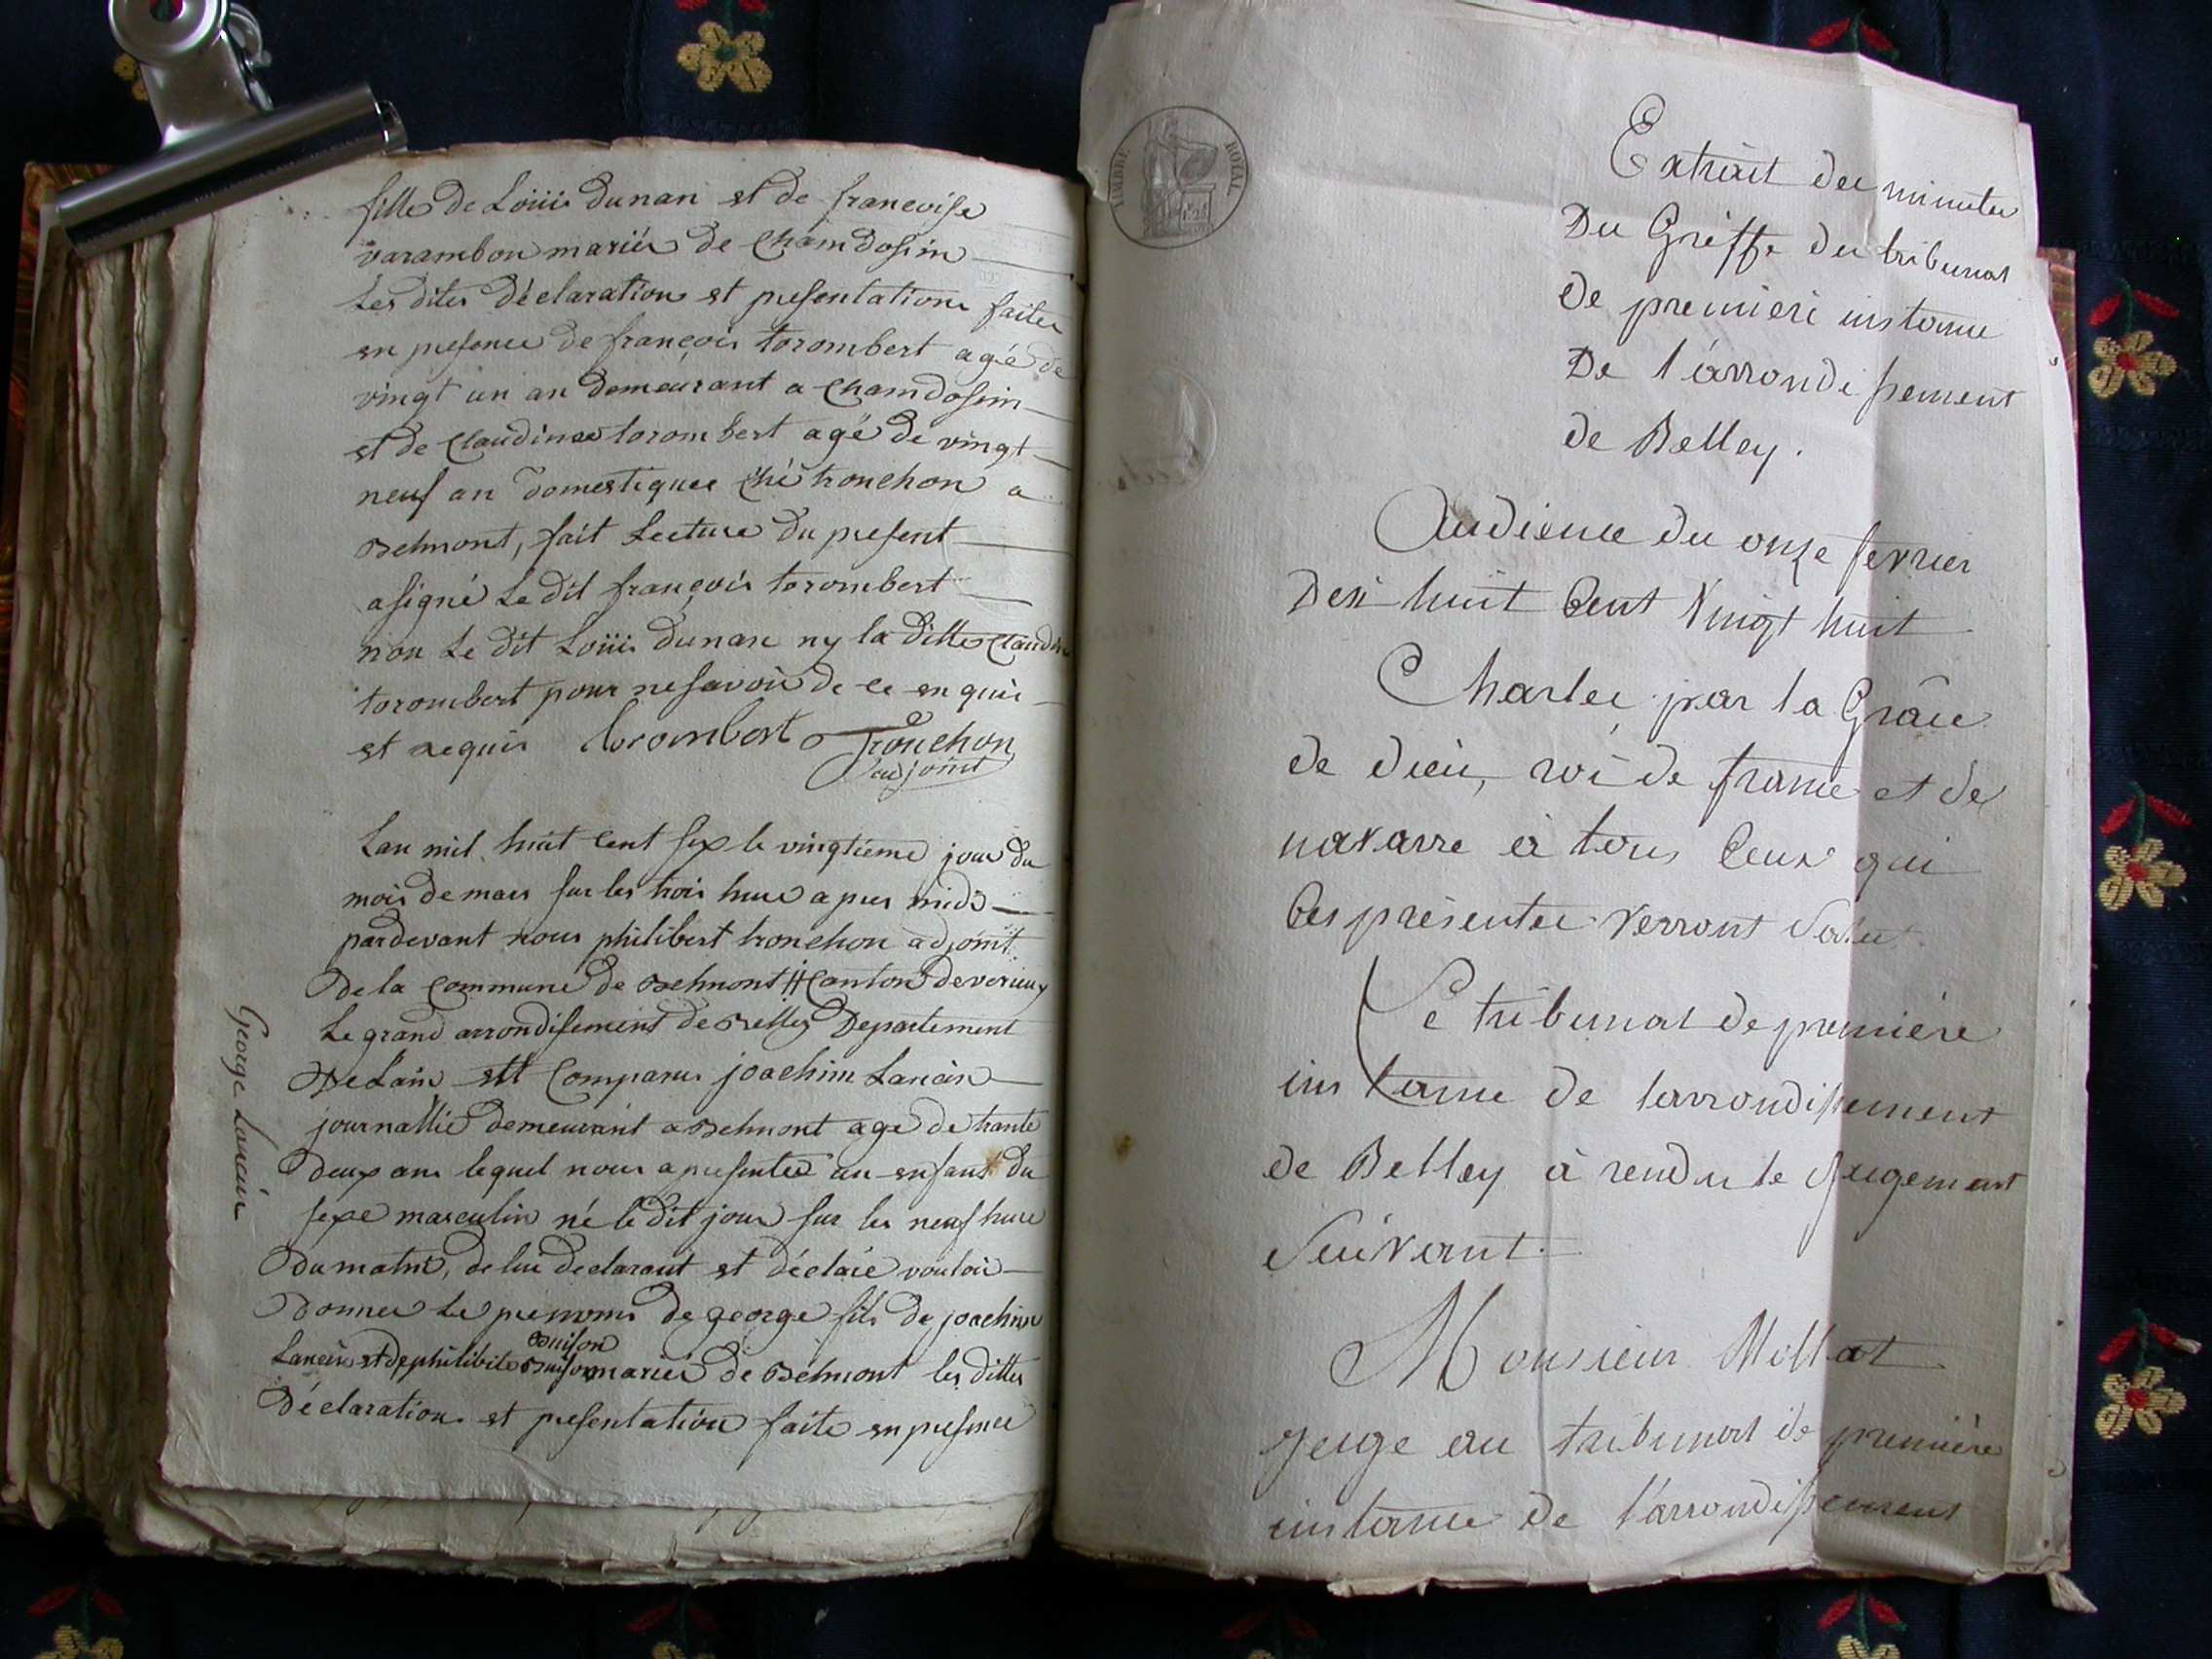 fille de Loüis dunan et de francoise
varambon mariés de Chamdosin
Les dites déclaration et presentations faites
en presence de françois torombert agé de
vingt un an demeurant a Chamdosin
et de Claudine torombert agé de vingt
neuf an domestiques ché tronchon a
Belmont, fait Lecture du present
asigné Le dit françois torombert
non Le dit Loüis dunan ny la ditte Claudine
torombert pour ne savoir de ce en quis
et requis torombert Tronchon
adjoint
Lan mil huit cent six le vingtieme jour du
mois de mars sur les trois hure a pres midi
pardevant nous philibert tronchon adjoint
De la Commune de Belmont Canton de virieux
Le grand arrondisement de Belley Departement
De Lain est Comparus joachim Lancin
journallié demeurant a Belmont age de trante
deux ans lequel nous a presentée un enfant du
sexe masculin né le dit jour sur les neuf hure
Du matin, de lui declarant et déclaré vouloir
donner Le prenoms de george fils de joachim
Buison
Lancin et de philibite Buison mariés de Belmont les dittes
Déclaration et presentation faite en presence
George Lancin
TIMBRE ROYAL
Extrait des minutes
Du Greffe du tribunal
De premiere instance
De l'arrondissement
de Belley.
Audience du onze fevrier
Dix huit Cent Vingt huit
Charles par la Grâce
de dieu, roi de france et de
navarre à tous Ceux qui
Ces présentes Verront Salut
Le tribunal de première
instance de larrondissement
de Belley à rendu le Jugement
Suivant.
Monsieur Mollat
Juge au tribunal de première
instance de l'arrondissement